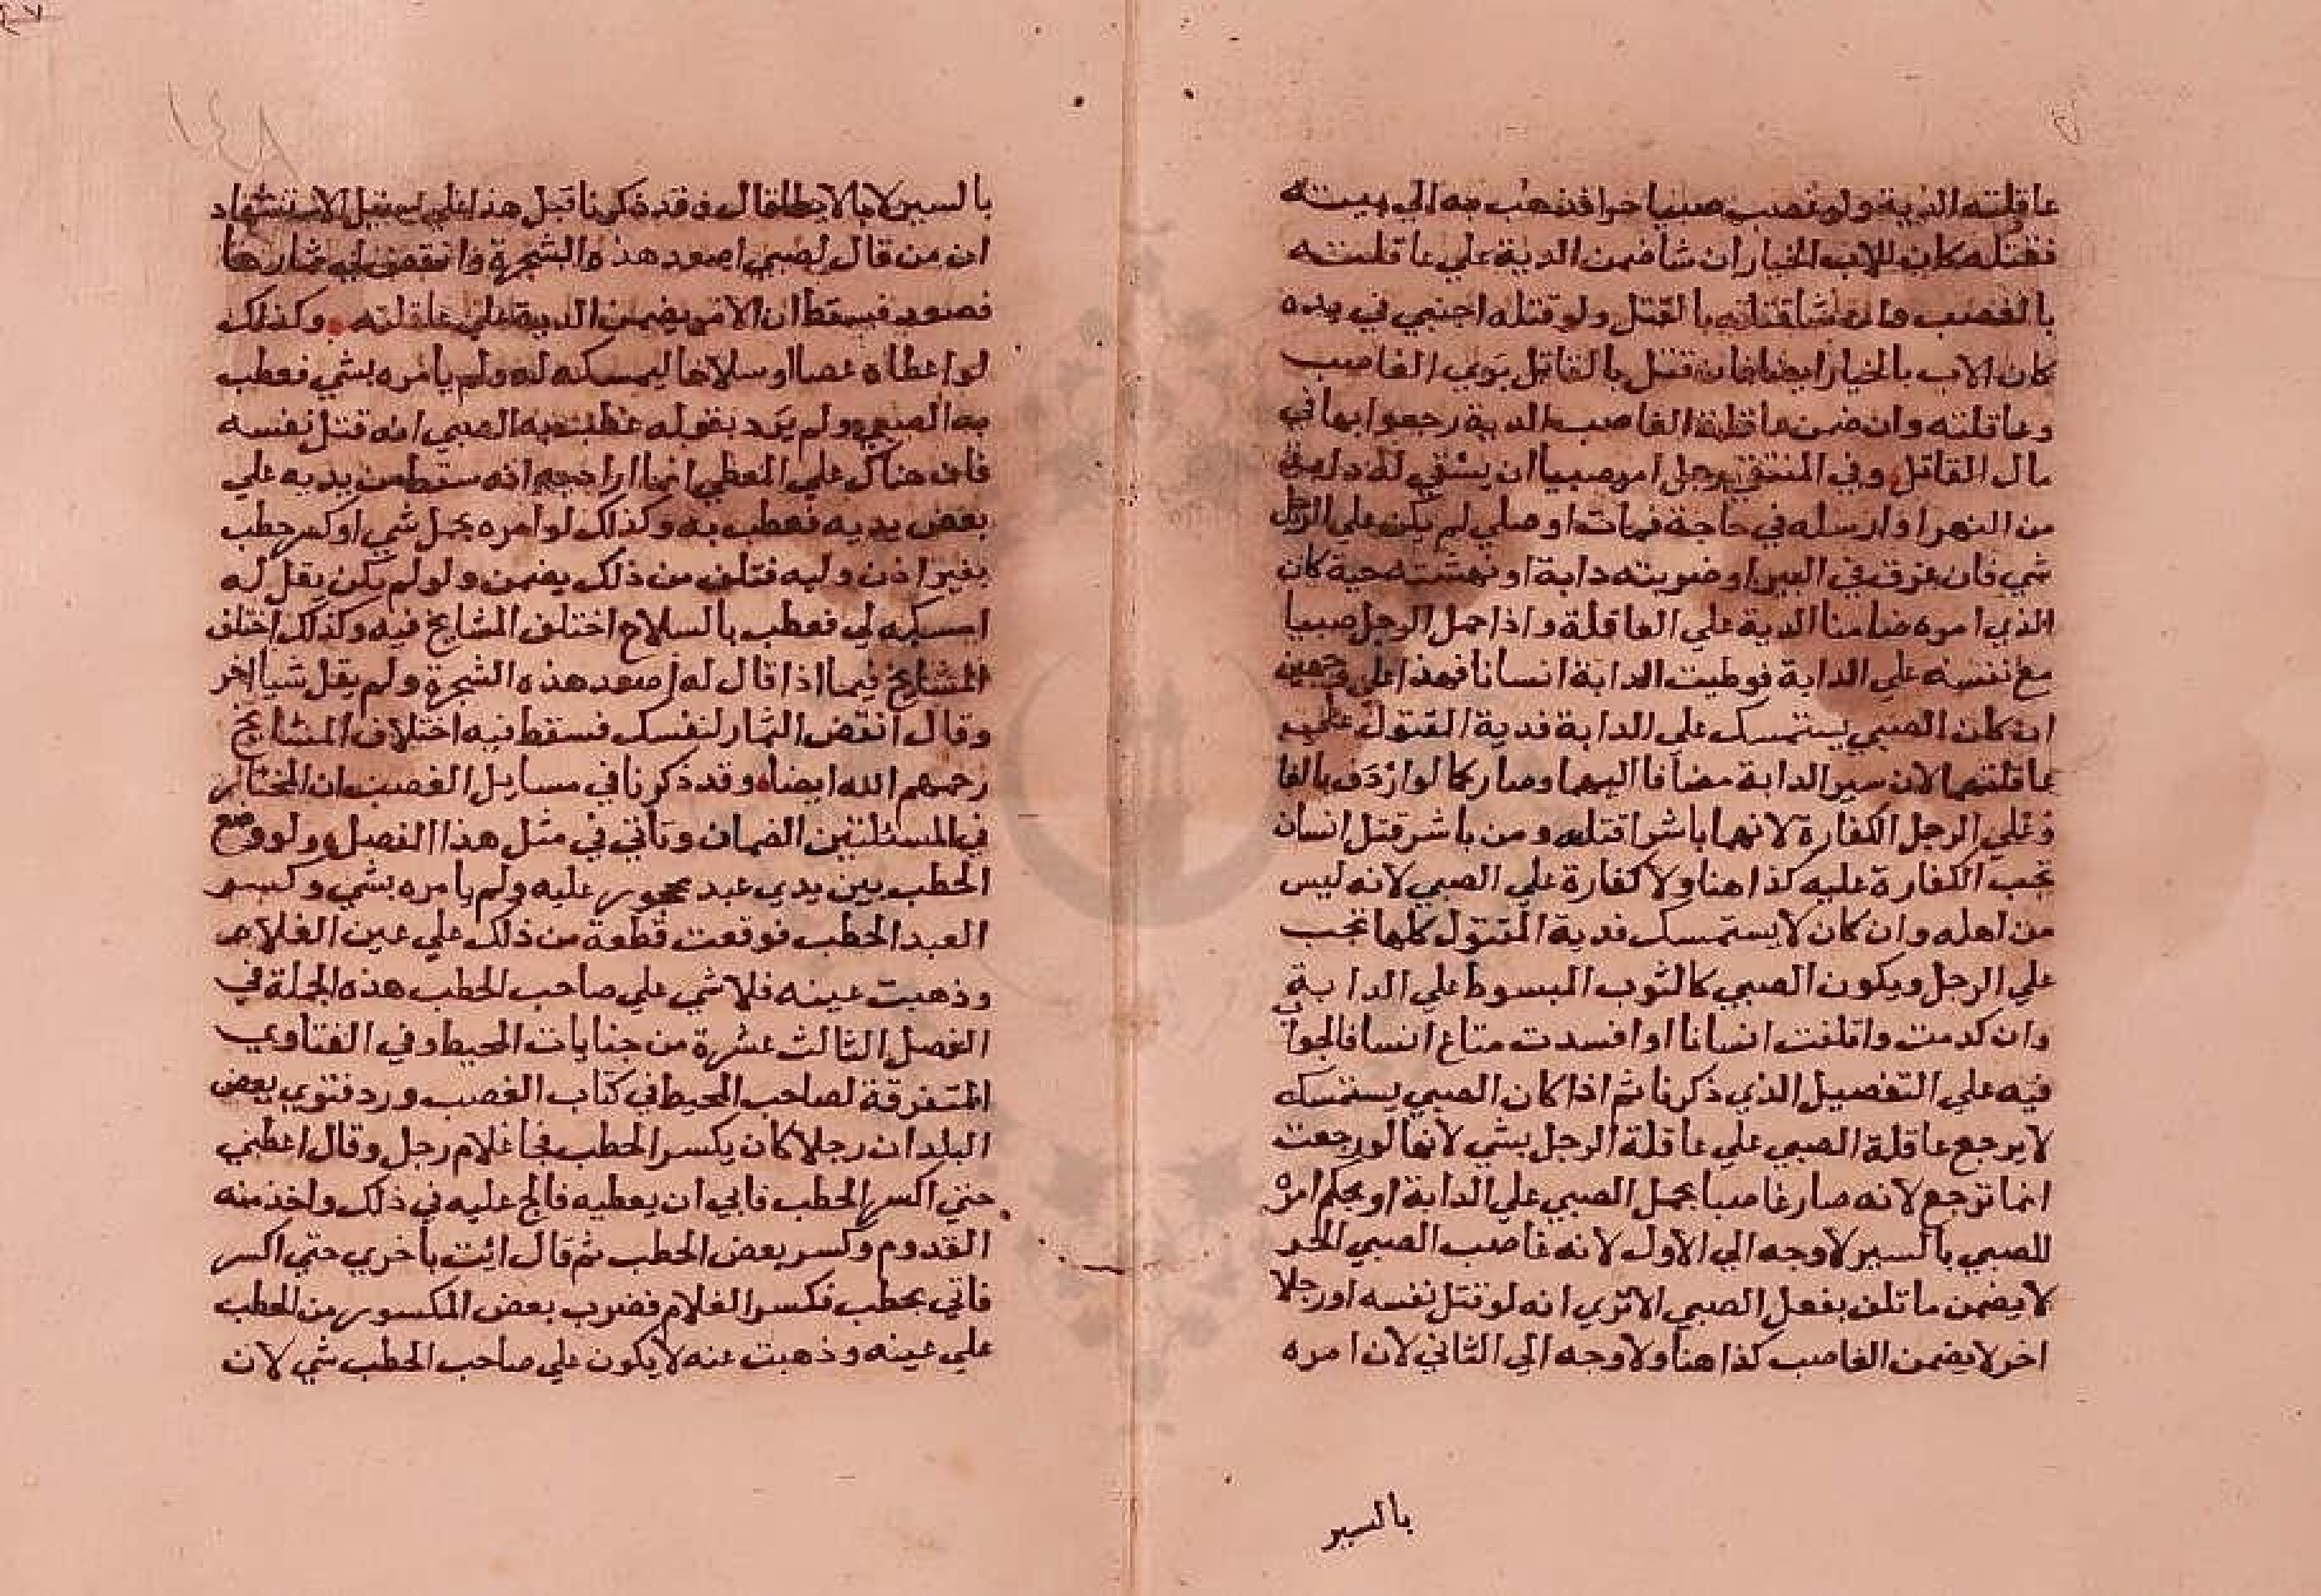 عاقلته الدية ولو غصب صبيا حرا فذهب به الي بيته
فقتله كان للاب الخيار ان شا ضمن الدية علي عاقلته
بالغصب وان شا قتله بالقتل ولو قتله اجنبي في يده
كان الاب بالخيار ايضا فان قتل بالقاتل بري الغاصب
وعاقلته وان ضمن عاقلة الغاصب الدية رجعوا بها في
مال القاتل وفي المنتقي رجل امر صبيا ان يسقي له دابة
من النهر او ارسله في حاجة فمات او صلي لم يكن علي الرجل
شي فان غرق في البير او ضربته دابة او نهشته حية كان
الذي امره ضامنا الدية علي العاقلة واذا حمل الرجل صبيا
مع نفسه علي الدابة فوطيت الدابة انسانا فهذا علي وجهين
ان كان الصبي يستمسك علي الدابة فدية المقتول علي
عاقلتهما لان سير الدابة مضافا اليهما وصار كما لو اردف بالغا
وعلي الرجل الكفارة لانهما باشرا قتله ومن باشر قتل انسان
تجب الكفارة عليه كذا هنا ولا كفارة علي الصبي لانه ليس
من اهله وان كان لا يستمسك فدية المقتول كلها تجب
علي الرجل ويكون الصبي كالثوب المبسوط علي الدابة
وان كدمت واتلفت انسانا او افسدت متاع انسان فالجواب
فيه علي التفصيل الذي ذكرنا ثم اذا كان الصبي يستمسك
لا يرجع عاقلة الصبي علي عاقلة الرجل بشي لانها لو رجعت
انما ترجع لانه صار غاصبا بحمل الصبي علي الدابة او بحكم امره
للصبي بالسير لا وجه الي الاول لانه غاصب الصبي الحر
لا يضمن ما تلف بفعل الصبي الا تري انه لو قتل نفسه او رجلا
اخر لا يضمن الغاصب كذا هنا ولا وجه الي الثاني لان امره
بالسير
بالسير لا بالايطا قال وقد ذكرنا قبل هذا
ان من قال لصبي اصعد هذه الشجرة وانفض لي ثمارها
فصعد فسقط ان الامر يضمن الدية علي عاقلته وكذلك
لو اعطاه عصا او سلاحا ليمسكه له ولم يأمره بشي فعطب
به الصبي ولم يرد بقوله عطب به الصبي انه قتل نفسه
فان هناك علي المعطي انما اراد به انه سقط من يديه علي
بعض يديه فعطب به وكذلك لو امره بحمل شي او كسر حطب
بغير اذن وليه فتلف من ذلك يضمن ولو لم يكن يقل له
امسكه لي فعطب بالسلاح اختلف المشايخ فيه وكذلك اختلف
المشايخ فيما اذا قال له اصعد هذه الشجرة ولم يقل شيا اخر
وقال انفض الثمار لنفسك فسقط فيه اختلاف المشايخ
رحمهم الله ايضا وقد ذكرنا في مسايل الغصب ان المختار
في المسئلتين الضمان وتأتي في مثل هذا الفصل ولو وضع
الحطب بين يدي عبد محجور عليه ولم يامره بشي وكسر
العبد الحطب فوقعت قطعة من ذلك علي عين الغلام
وذهبت عينه فلا شي علي صاحب الحطب هذه الجملة في
الفصل الثالث عشرة من جنايات المحيط وفي الفتاوي
المتفرقة لصاحب المحيط في كتاب الغصب ورد فتوي بعض
البلد ان رجلا كان يكسر الحطب فجا غلام رجل وقال اعطني
حتي اكسر الحطب فابي ان يعطيه فالح عليه في ذلك واخذ منه
القدوم وكسر بعض الحطب ثم قال ائت بأخري حتي اكسر
فاتي بحطب فكسر الغلام فضرب بعض المكسور من الحطب
علي عينه وذهبت عنه لا يكون علي صاحب الحطب شي لان
١٤٨